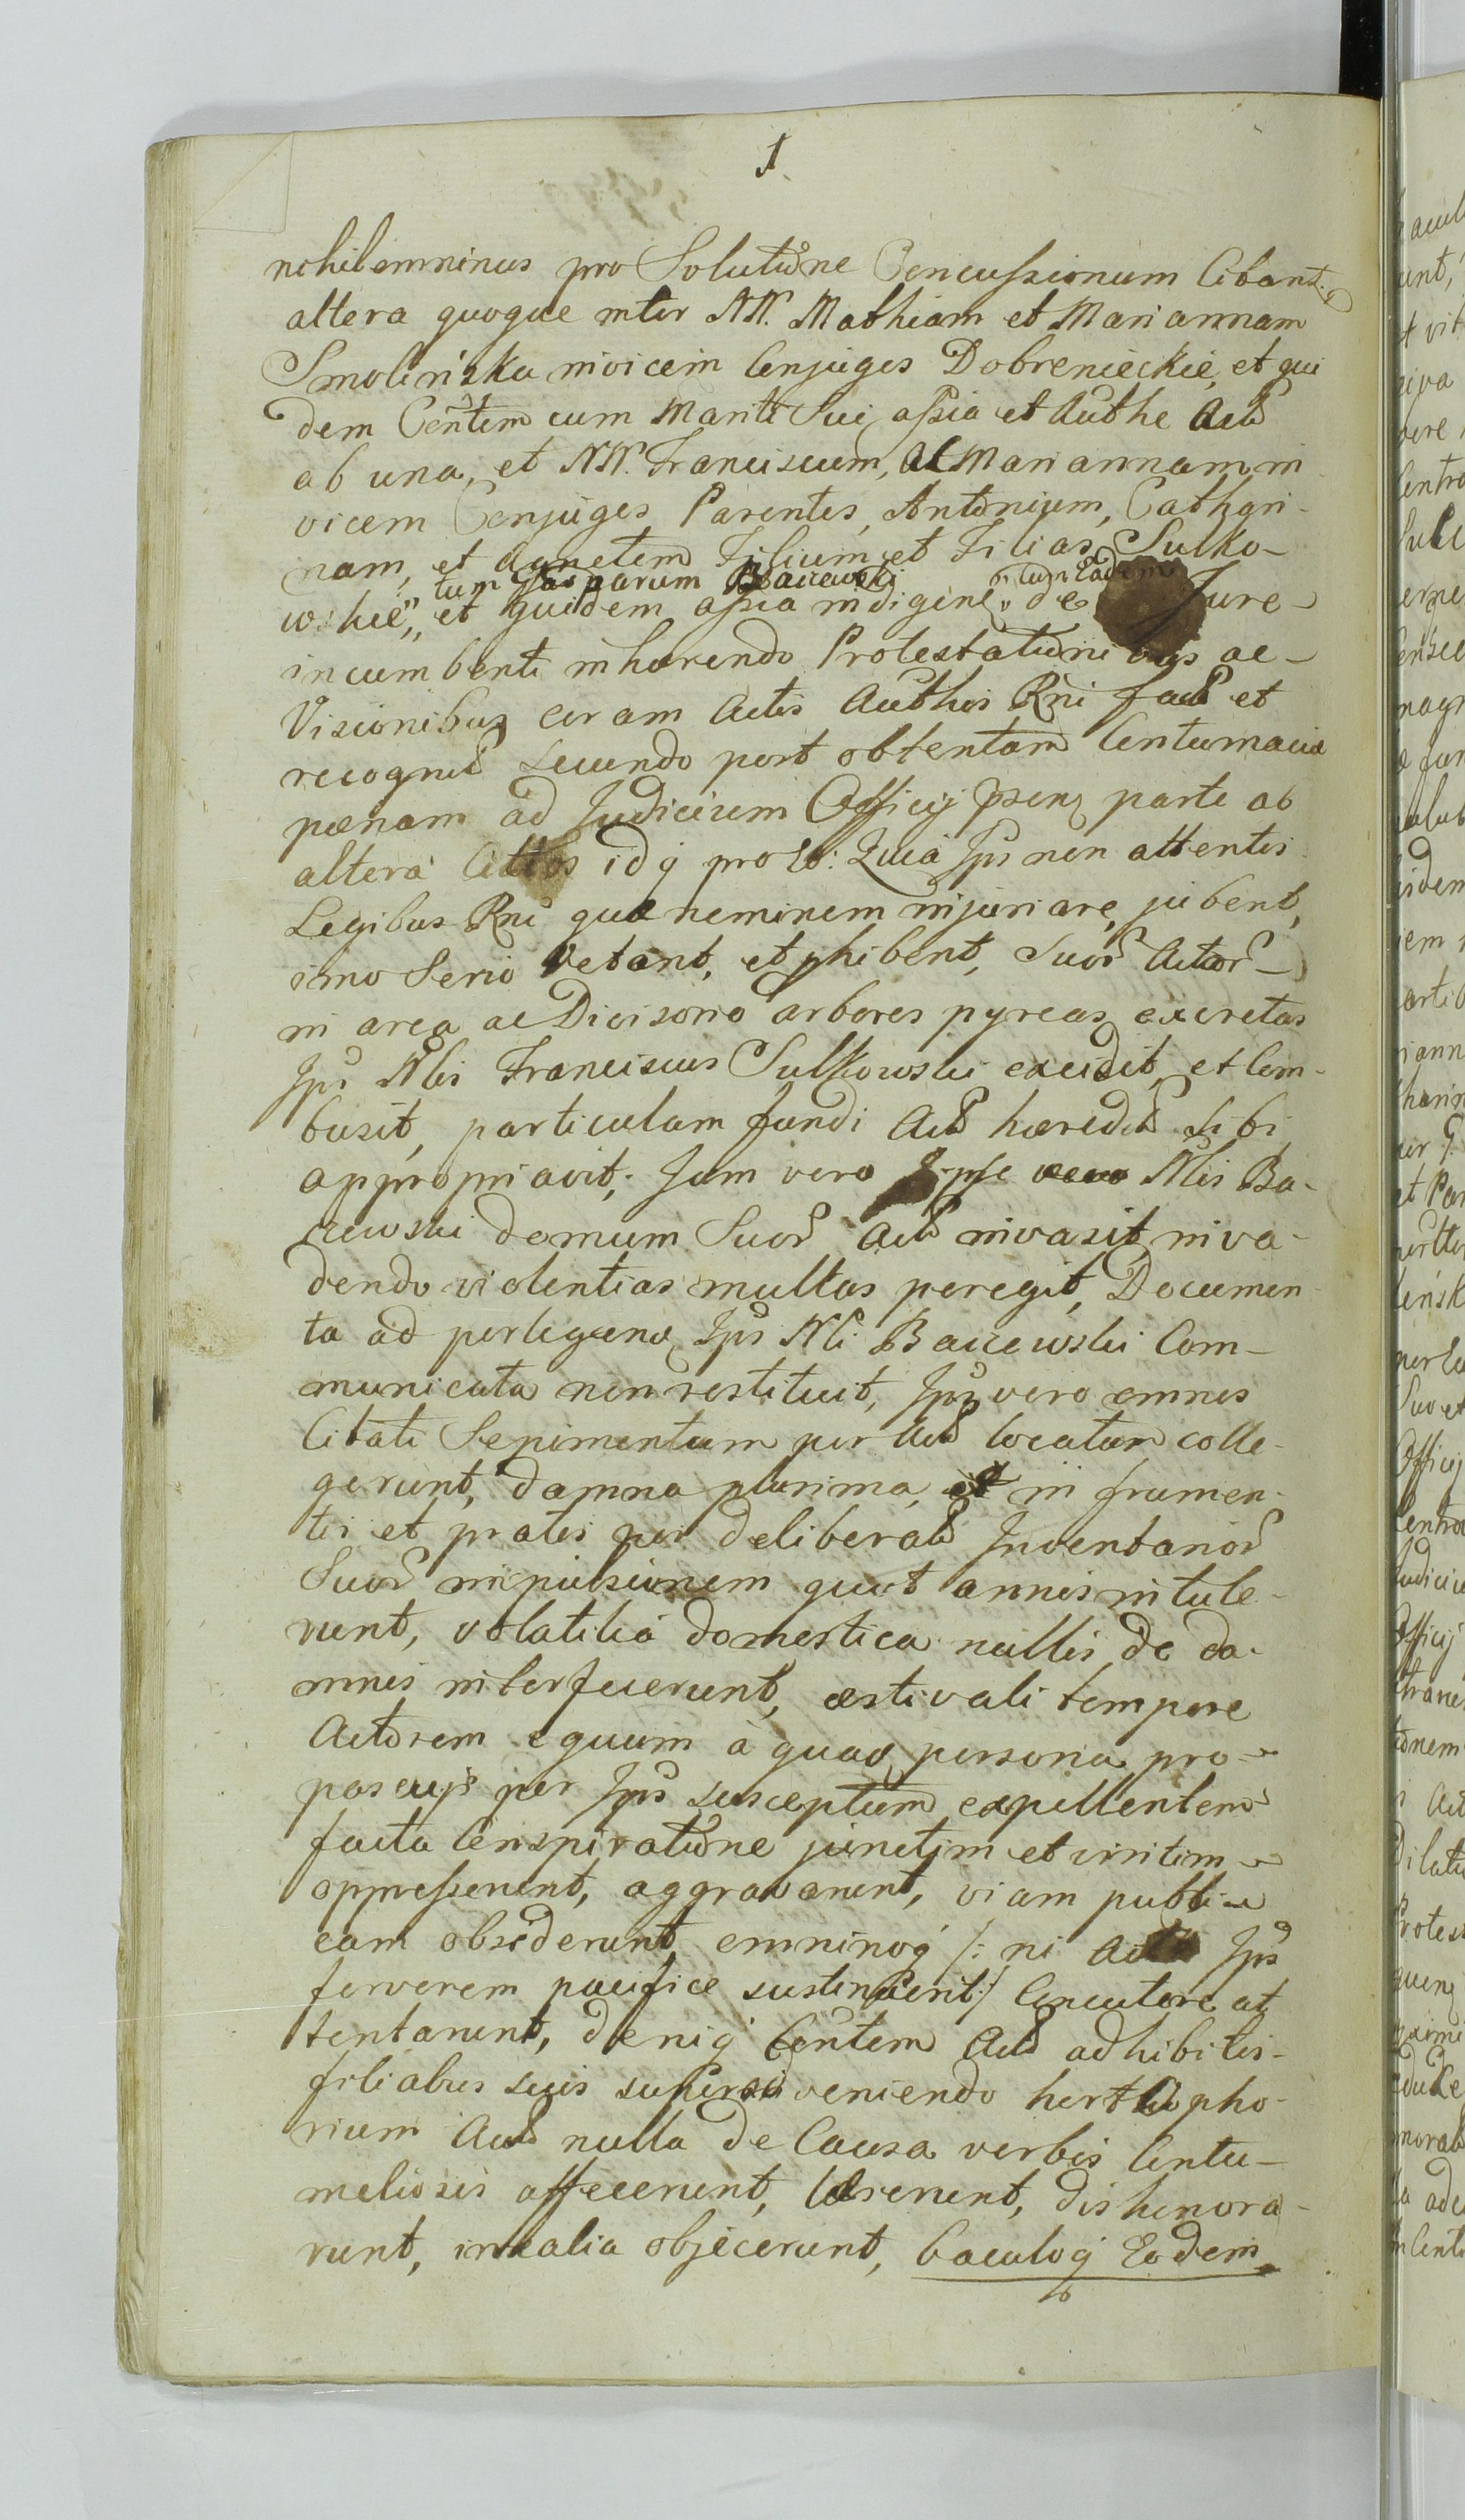 1
nihilominus pro Solutione Concussionum Citant.
altera quoque inter NN. Mathiam et Mariannam
Smolińska invicem Conjuges Dobrenieckie, et qui
dem Contem cum Mariti Sui assia et Authe Act
ab una, et NN. Franciscum, ac Mariannam in
vicem Conjuges Parentes, Antonium, Cathari-
nam, et Agnetem Filium et Filias Sulko-
tum Gasparum Bacewski cum Eadem
wskie, et quidem assia indigene de Jure
incumbenti inhærendo Protestationibus ac
Visionibus coram Actis Authis Rni fact et
recognit secundo post obtentam Contumacia
pœnam ad Judicium Officij pseng parte ab
altera Cittos idq pro eo: Quia Ipsi non attentis
Legibus Rni quæ neminem injuriare jubent,
imo Serio Vetant, et phibent, Suor Actor
in area ac Divisorio arbores pyreas excretas
Ips Nlis Franciscus Sulkowski excidit, et Com-
busit, particulam fundi Act hæredit sibi
appropriavit; Jam vero Ipse Nlis Ba-
cewski domum Suor Act invasit, inva-
dendo violentias multas peregit, Documen-
ta ad perlegend Ips Nli Bacewski Com-
municata non restituit, Ips vero omnes
Citati Sepimentum per Act locatum colle-
gerunt, damna plurima, et in frumen-
tis et pratis per deliberat Inventarior
Suor impulsionem quot annis intule-
runt, volatilia domestica nullis de da-
mnis interfecerunt, æstivali tempore
Actorem equum à quad persona pro
pascuis per Ips susceptum expellentem
facta Conspiratione junctim et unitim
oppresserunt, aggravarunt, viam publi-
cam obsiderunt, omninoq /: ni Act Ips
fervorem pacifice sustinuerit :/ Concutere at
tentarunt, deniq Contem Act adhibitis
filiabus suis superadveniendo horto pho-
rium Act nulla de Causa verbis Contu-
meliosis affecerunt, læserunt, dishonora-
runt, in talia objecerunt, baculoq Eodem